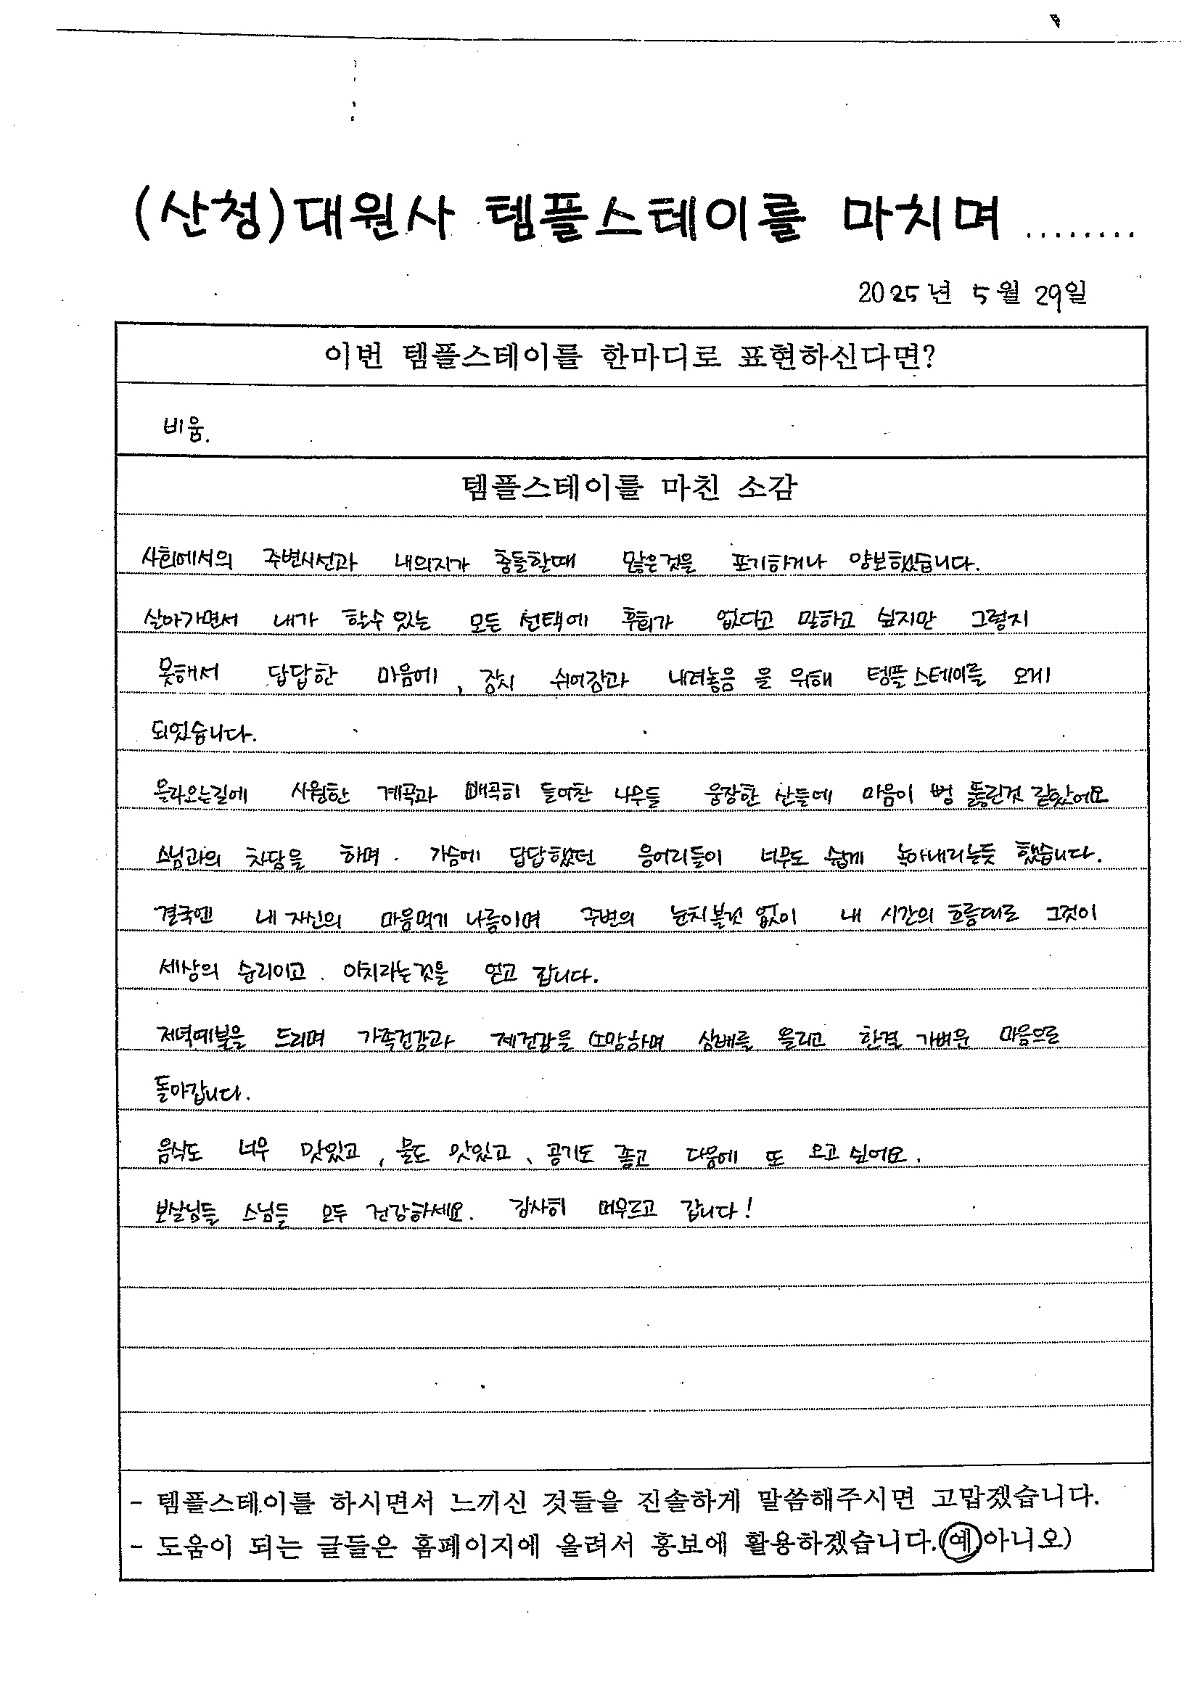 (산청)대원사 템플스테이를 마치며 ........
2025년 5월 29일
이번 템플스테이를 한마디로 표현하신다면?
비움.
템플스테이를 마친 소감
사회에서의 주변시선과 내의지가 충돌할때 많은것을 포기하거나 양보했습니다.
살아가면서 내가 할수있는 모든 선택에 후회가 없다고 말하고 싶지만 그렇지
못해서 답답한 마음에, 잠시 쉬어감과 내려놓음 을 위해 템플스테이를 오게
되었습니다.
올라오는길에 시원한 계곡과 빼곡히 들어찬 나무들 웅장한 산들에 마음이 뻥 뚫린것 같았어요
스님과의 차담을 하며. 가슴에 답답했던 응어리들이 너무도 쉽게 녹아내리는듯 했습니다.
결국엔 내 자신의 마음먹기 나름이며 주변의 눈치볼것 없이 내 시간의 흐름대로 그것이
세상의 순리이고. 이치라는것을 얻고 갑니다.
저녁예불을 드리며 가족건강과 제건강을 소망하며 삼배를 올리고 한결 가벼운 마음으로
돌아갑니다.
음식도 너무 맛있고, 물도 맛있고, 공기도 좋고 다음에 또 오고 싶어요.
보살님들 스님들 모두 건강하세요. 감사히 머무르고 갑니다!
- 템플스테이를 하시면서 느끼신 것들을 진솔하게 말씀해주시면 고맙겠습니다.
- 도움이 되는 글들은 홈페이지에 올려서 홍보에 활용하겠습니다.(예)아니오)